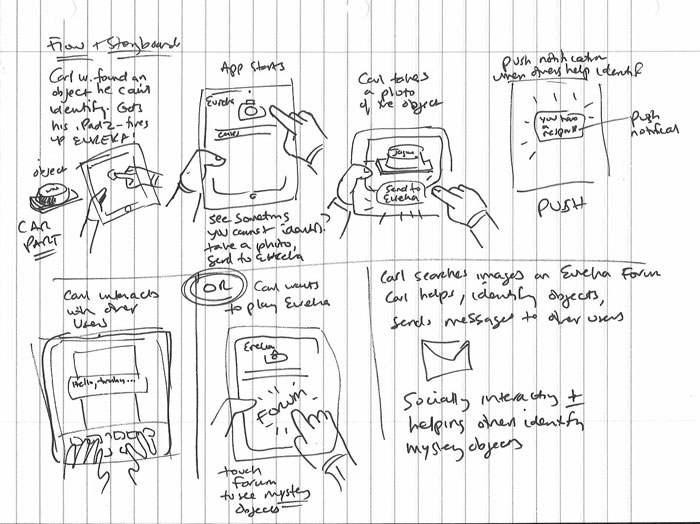 Flow + Storyboard
Carl w. found an
object he can't
identify. Gets
his iPad2 - fires
up EUREKA!
object
CAR
PART
App Starts
Eureka
see something
you cannot identify?
take a photo,
send to Eureka
Carl takes
a photo
of the object
send to
Eureka
Push notification
when others help identify
you have
a response
Push
notificat
PUSH
Carl interacts
with other
users
Hello, ...
OR
Carl wants
to play Eureka
Eureka
Forum
touch
Forum
to see mystery
objects
Carl searches images on Eureka Forum
Carl helps, identify objects,
sends messages to other users
Socially interacting +
helping others identify
mystery objects